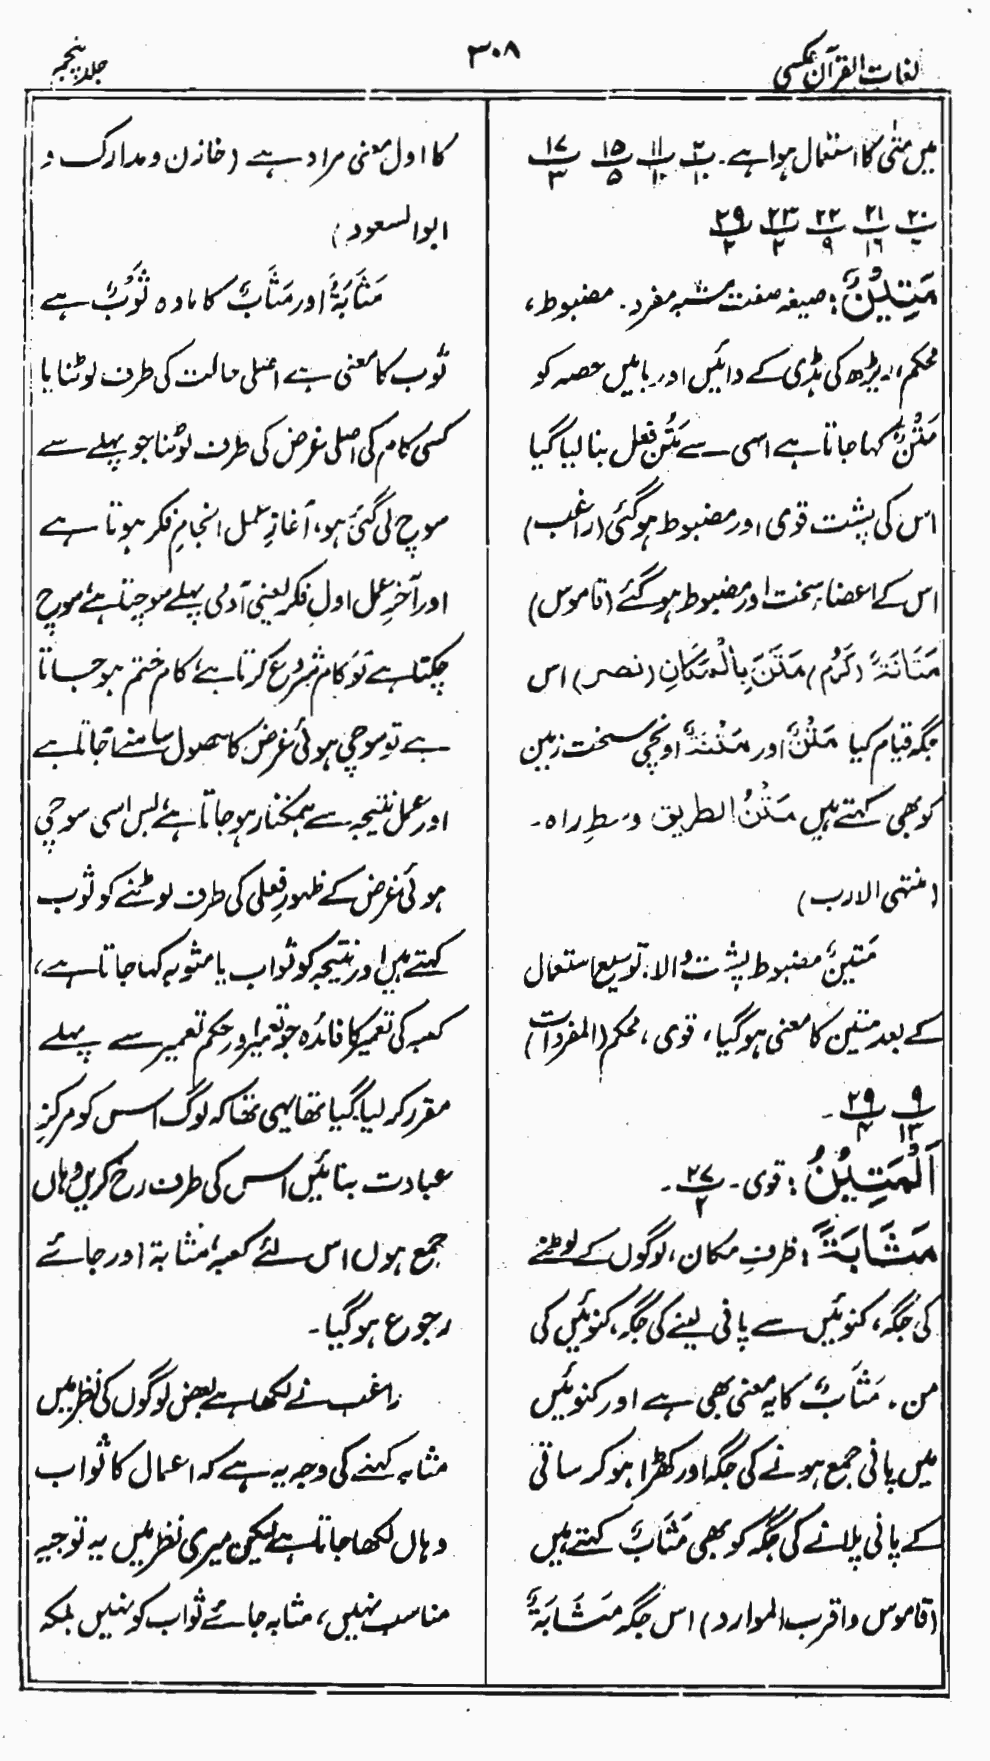 لغات القرآن عکسی
۳۰۸
جلد پنجم
میں متٰی کا استعمال ہوا ہے۔ ۲/۱۰ ۱۱/۱۰ ۱۵/۵ ۱۷/۳
۲۰/ ۲۱/۱۶ ۲۲/۹ ۲۳/۲ ۲۹/۲
مَتِیْنٌ: صیغہ صفت مشبہ مفرد۔ مضبوط،
محکم، ریڑھ کی ہڈی کے دائیں اور بائیں حصہ کو
مَتْنٌ کہا جاتا ہے اسی سے مَتُنَ فعل بنا لیا گیا
اس کی پشت قوی اور مضبوط ہوگئی (راغب)
اس کے اعضاء سخت اور مضبوط ہو گئے (قاموس)
مَتَانَةً (کَرُم) مَتَنَ بِالْمَکَانِ (نصر) اس
جگہ قیام کیا مَتْنٌ اور مَتْنَةٌ اونچی سخت زمین
کو بھی کہتے ہیں مَتْنُ الطریق وسطِ راہ۔
(منتہی الارب)
مَتِینٌ مضبوط پشت والا۔ توسیع استعمال
کے بعد متین کا معنی ہوگیا، قوی، محکم (المفردات)
۹/۱۳ ۲۹/۴ ۔
اَلْمَتِیْنُ: قوی۔ ۲۷/۲ ۔
مَثَابَةً: ظرفِ مکان، لوگوں کے لوٹنے
کی جگہ، کنوئیں سے پانی لینے کی جگہ، کنوئیں کی
من۔ مَثَابٌ کا یہ معنی بھی ہے اور کنوئیں
میں پانی جمع ہونے کی جگہ اور کھڑا ہو کر ساقی
کے پانی پلانے کی جگہ کو بھی مَثَابٌ کہتے ہیں
(قاموس واقرب الموارد) اس جگہ مَثَابَةٌ
کا اول معنی مراد ہے (خازن و مدارک و
ابوالسعود)
مَثَابَةٌ اور مَثَابٌ کا مادہ ثَوْبٌ ہے
ثوب کا معنی ہے اصلی حالت کی طرف لوٹنا یا
کسی کام کی اصلی غرض کی طرف لوٹنا جو پہلے سے
سوچ لی گئی ہو، آغازِ عمل انجامِ فکر ہوتا ہے
اور آخرِ عمل اولِ فکر یعنی آدمی پہلے سوچتا ہے، سوچ
چکتا ہے تو کام شروع کرتا ہے، کام ختم ہوجاتا
ہے تو سوچی ہوئی غرض کا حصول سامنے آجاتا ہے
اور عمل نتیجہ سے ہمکنار ہوجاتا ہے، بس اسی سوچی
ہوئی غرض کے ظہورِ فعلی کی طرف لوٹنے کو ثوب
کہتے ہیں اور نتیجہ کو ثواب یا مثوبہ کہا جاتا ہے،
کعبہ کی تعمیر کا فائدہ جو تعمیر اور حکم تعمیر سے پہلے
مقرر کر لیا گیا تھا یہی تھا کہ لوگ اس کو مرکزِ
عبادت بنائیں اس کی طرف رخ کریں وہاں
جمع ہوں اس لئے کعبہ، مثابۃ اور جائے
رجوع ہوگیا۔
راغب نے لکھا ہے بعض لوگوں کی نظر میں
مثابہ کہنے کی وجہ یہ ہے کہ اعمال کا ثواب
وہاں لکھا جاتا ہے لیکن میری نظر میں یہ توجیہ
مناسب نہیں، مثابہ جائے ثواب کو نہیں بلکہ